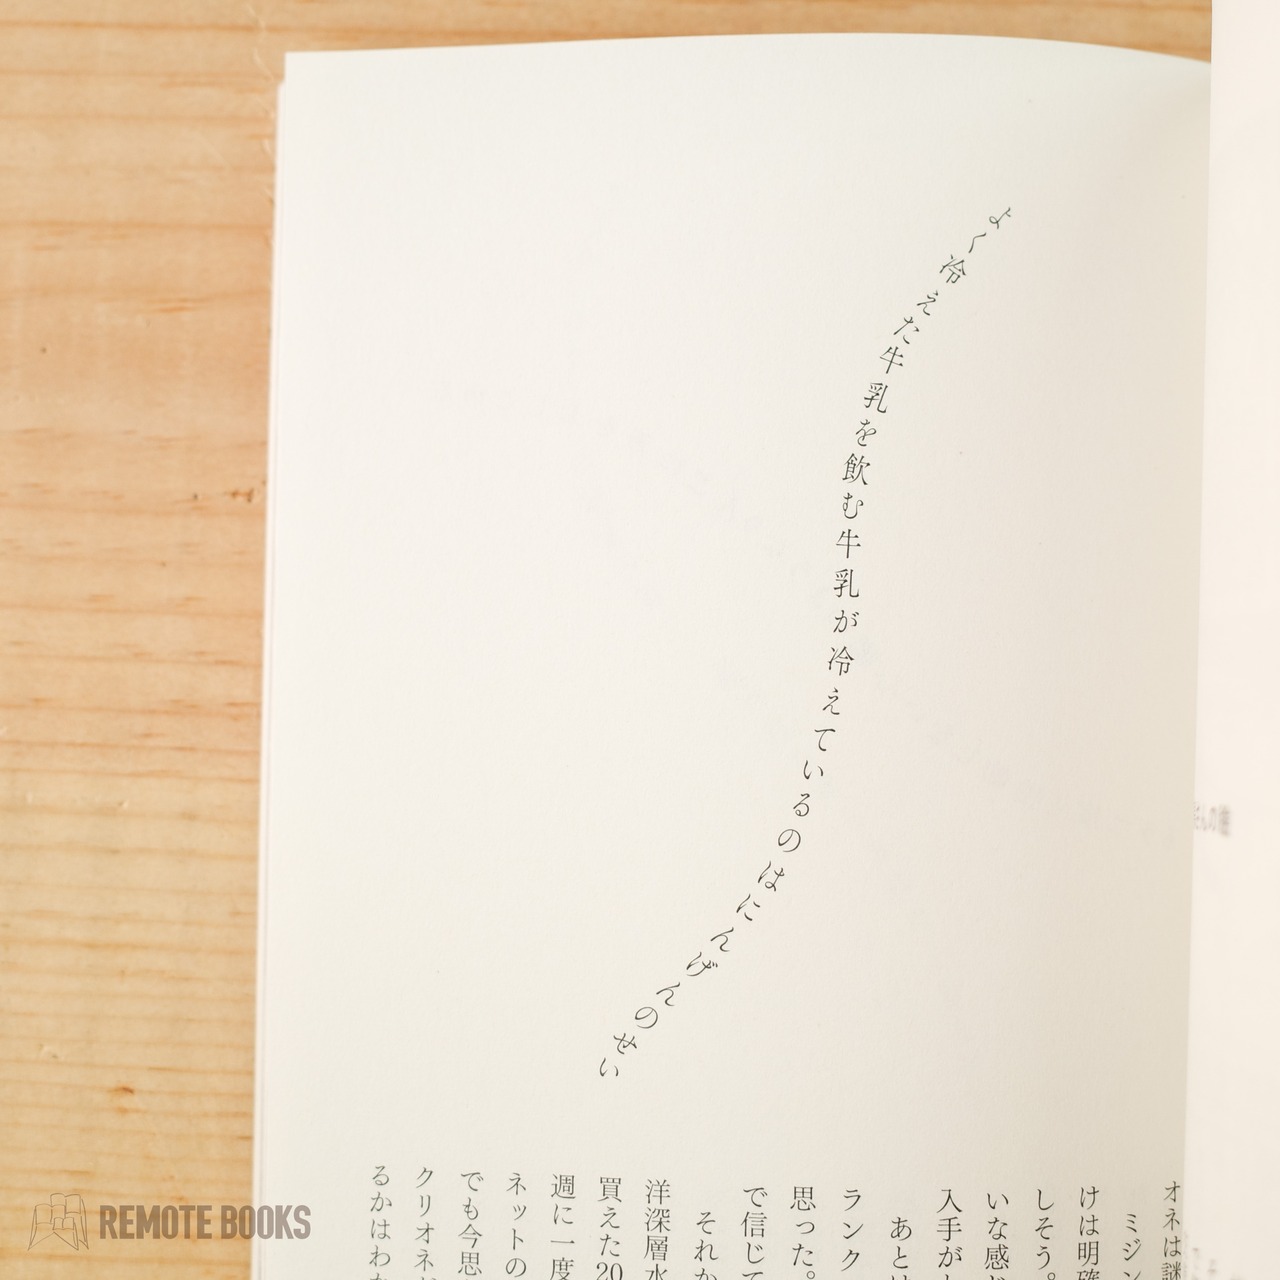 よく冷えた牛乳を飲む牛乳が冷えているのはにんげんのせい
オネは謎
ミジン
けは明確
しそう。
いな感じ
入手が
あとは
ランク
思った。
で信じて
それか
洋深層水
買えた20
週に一度
ネットの
でも今思
クリオネ
るかはわ
REMOTE BOOKS